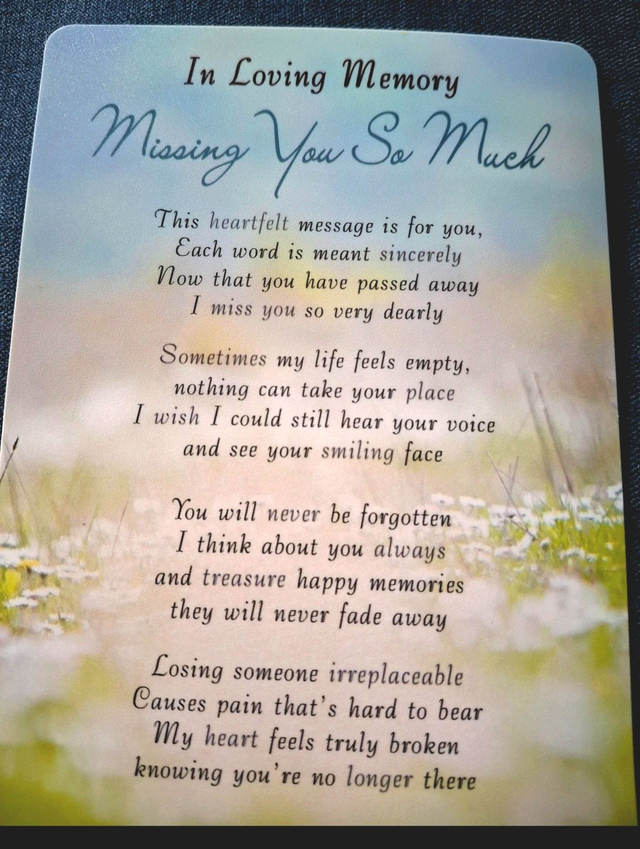 In Loving Memory
Missing You So Much
This heartfelt message is for you,
Each word is meant sincerely
Now that you have passed away
I miss you so very dearly
Sometimes my life feels empty,
nothing can take your place
I wish I could still hear your voice
and see your smiling face
You will never be forgotten
I think about you always
and treasure happy memories
they will never fade away
Losing someone irreplaceable
Causes pain that's hard to bear
My heart feels truly broken
knowing you're no longer there